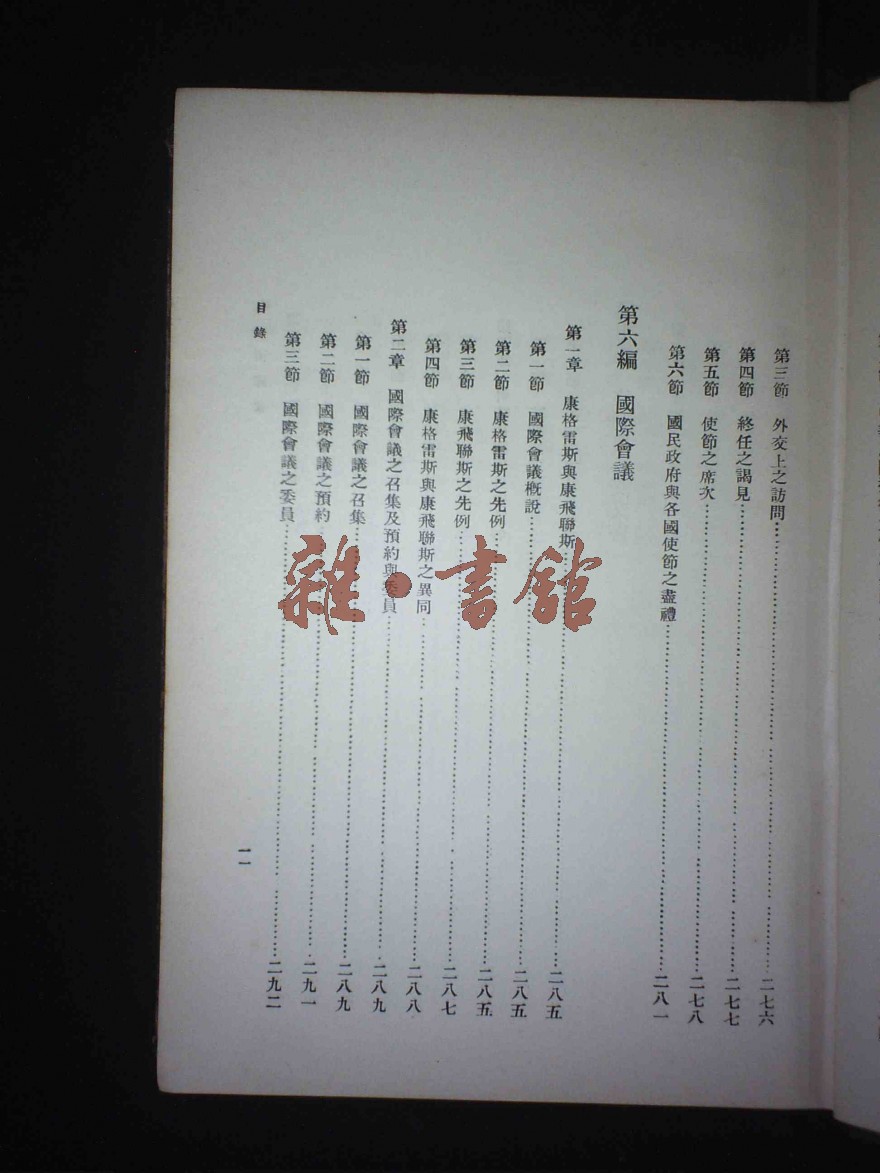 第三節　外交上之訪問……二七六
第四節　終任之謁見……二七七
第五節　使節之席次……二七八
第六節　國民政府與各國使節之盡禮……二八一
第六編　國際會議
第一章　康格雷斯與康飛聯斯……二八五
第一節　國際會議概說……二八五
第二節　康格雷斯之先例……二八五
第三節　康飛聯斯之先例……二八七
第四節　康格雷斯與康飛聯斯之異同……二八八
第二章　國際會議之召集及預約與委員……二八九
第一節　國際會議之召集……二八九
第二節　國際會議之預約……二九一
第三節　國際會議之委員……二九二
目錄
一一
雜·書館